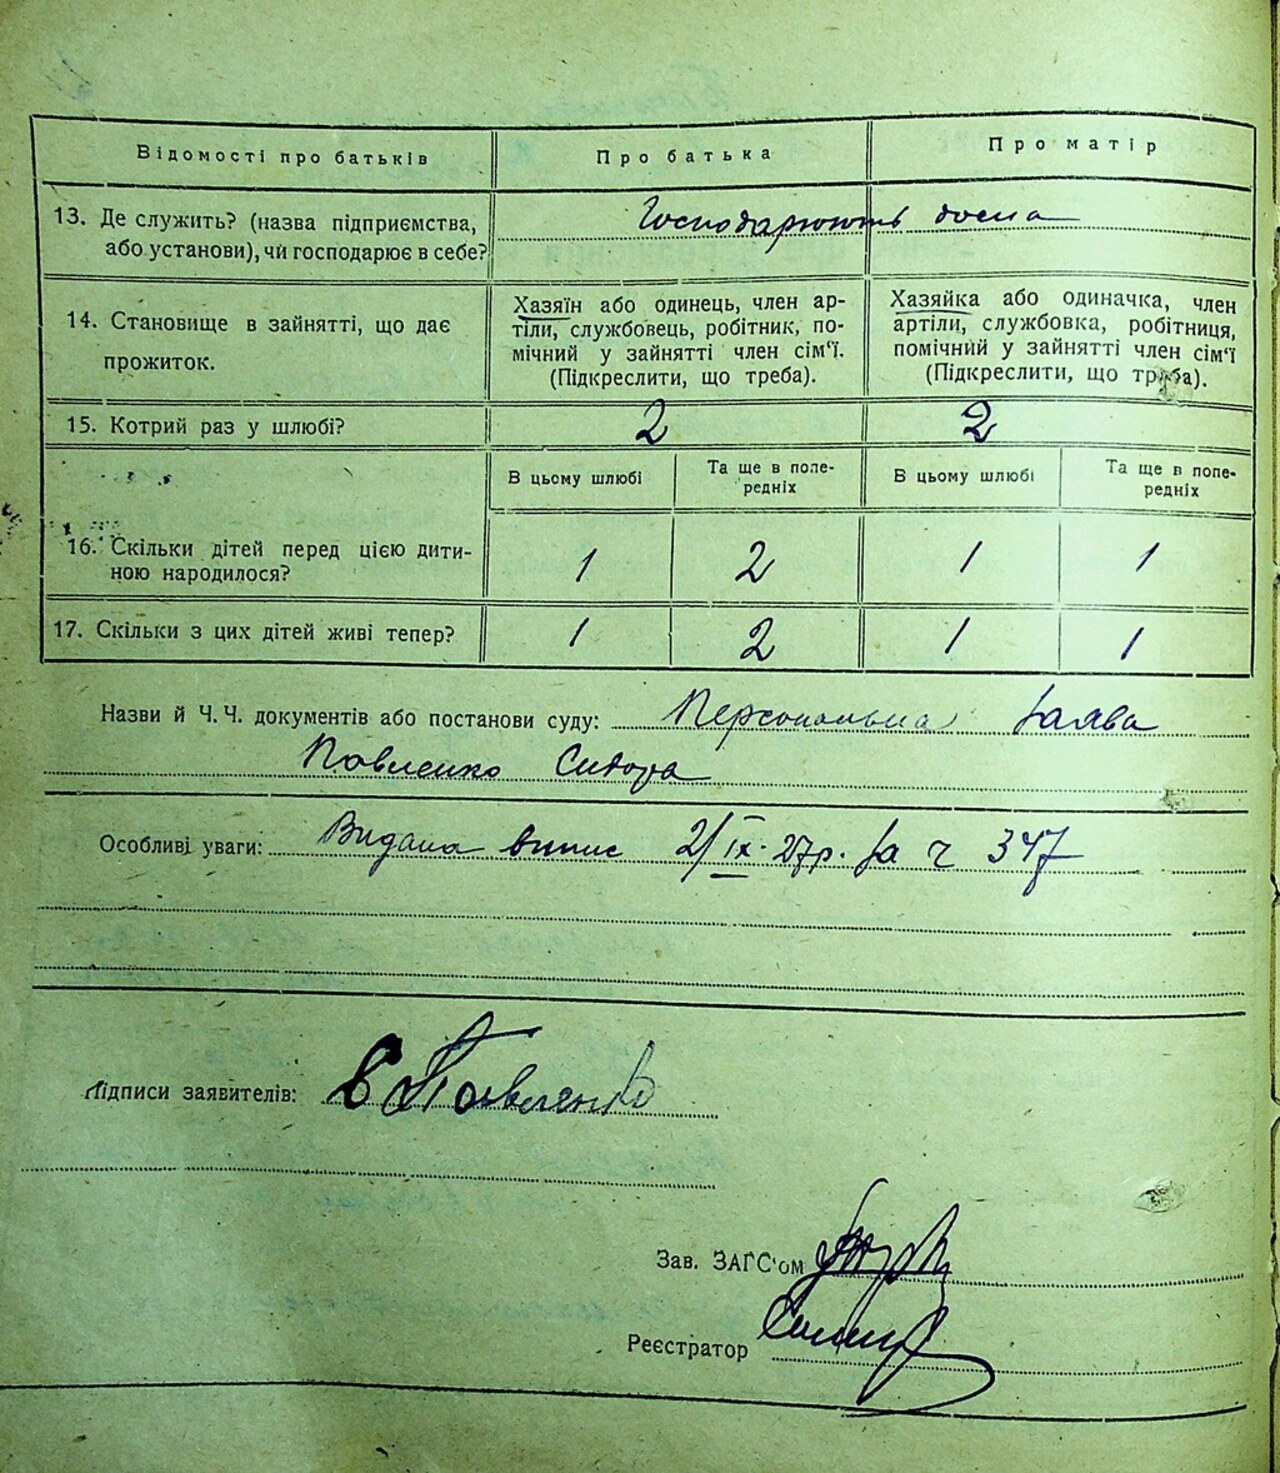 Відомості про батьків
Про батька
Про матір
13. Де служить? (назва підприємства,
або установи), чи господарює в себе?
Господарюють дома
14. Становище в зайнятті, що дає
прожиток.
Хазяїн або одинець, член ар-
тіли, службовець, робітник, по-
мічний у зайнятті член сім'ї.
(Підкреслити, що треба).
Хазяйка або одиначка, член
артіли, службовка, робітниця,
помічний у зайнятті член сім'ї
(Підкреслити, що треба).
15. Котрий раз у шлюбі?
2
2
В цьому шлюбі
Та ще в попе-
редніх
В цьому шлюбі
Та ще в попе-
редніх
16. Скільки дітей перед цією дити-
ною народилося?
1
2
1
1
17. Скільки з цих дітей живі тепер?
1
2
1
1
Назви й Ч. Ч. документів або постанови суду: Персональна заява
Павленко Сидора
Особливі уваги: Видана випис 2/IX-27р. за ч 347
Підписи заявителів: С Павленко
Зав. ЗАГС'ом
Реєстратор